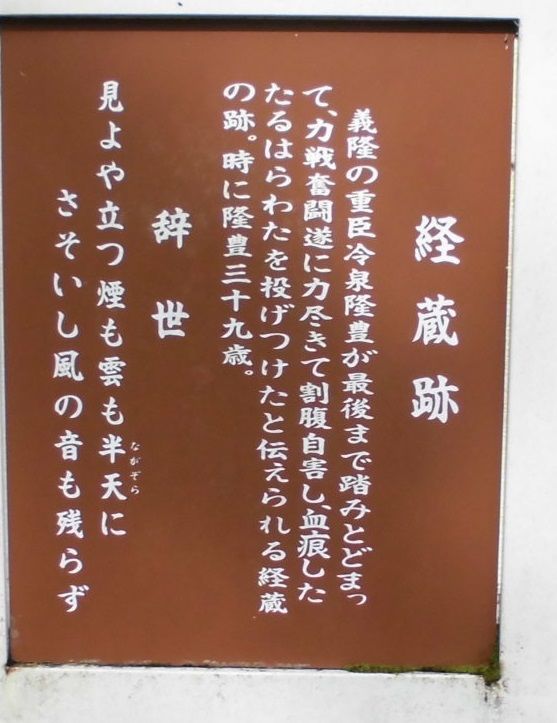 経蔵跡
義隆の重臣冷泉隆豊が最後まで踏みとどまっ
て、力戦奮闘遂に力尽きて割腹自害し、血痕した
たるはらわたを投げつけたと伝えられる経蔵
の跡。時に隆豊三十九歳。
辞世
見よや立つ煙も雲も半天に
ながぞら
さそいし風の音も残らず